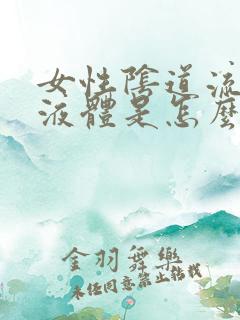 女性陰道流
液體是怎麼
金羽舞樂
未经同意禁止转载